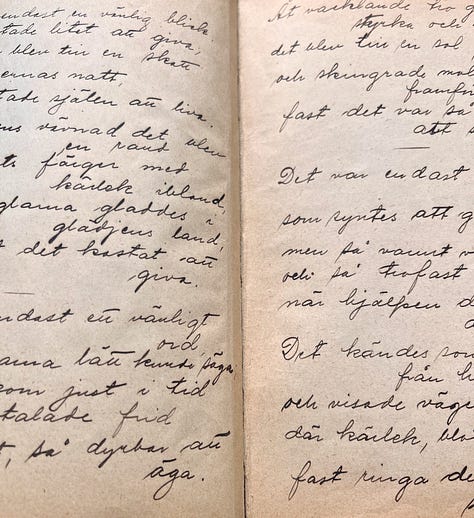 endast en vänlig blick
tade litet att giva,
blev till en skatt
ernas natt,
tade själen att liva.
vävnad det blev
en rand
färger med
kärlek ibland,
glama gladdes i
glädjens land,
det kostat att
giva.
ndast ett vänligt
ord,
arna lätt kunde säga
som just i tid
talade frid
t, så dyrbar att
äga.
Åt vacklande
styrka och
det blev till en sol
och skingrade
framför
fast det var så
att
Det var endast
som syntes att g
men så varmt v
och så trofast
när hjälpen d
Det kändes som
från
och visade väge
där kärlek,
fast ringa de